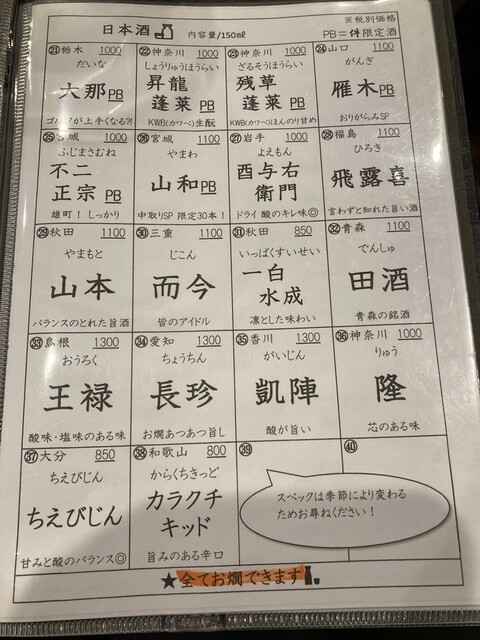 日本酒 内容量/150ml
※税別価格
PB=件限定酒
㉑栃木 1000
だいな
大那PB
ゴルフが上手くなる?!
㉒神奈川 1000
しょうりゅうほうらい
昇龍
蓬莱 PB
KWB(カワベ)生酛
㉓神奈川 1000
ざるそうほうらい
残草
蓬莱 PB
KWB(カワベ)ほんのり甘め
㉔山口 1100
がんぎ
雁木PB
おりがらみSP
㉕宮城 1000
ふじまさむね
不二
正宗 PB
雄町！しっかり
㉖宮城 1100
やまわ
山和PB
中取りSP 限定30本！
㉗岩手 1000
よえもん
酉与右
衛門
ドライ 酸のキレ味◎
㉘福島 1100
ひろき
飛露喜
言わずと知れた旨い酒
㉙秋田 1100
やまもと
山本
バランスのとれた旨酒
㉚三重 1100
じこん
而今
皆のアイドル
㉛秋田 850
いっぱくすいせい
一白
水成
凛とした味わい
㉜青森 1100
でんしゅ
田酒
青森の銘酒
㉝島根 1300
おうろく
王禄
酸味・塩味のある味
㉞愛知 1300
ちょうちん
長珍
お燗あつあつ旨し
㉟香川 1300
がいじん
凱陣
酸が旨い
㊱神奈川 1000
りゅう
隆
芯のある味
㊲大分 850
ちえびじん
ちえびじん
甘みと酸のバランス◎
㊳和歌山 800
からくちきっど
カラクチ
キッド
旨みのある辛口
㊴
㊵
スペックは季節により変わる
ためお尋ねください！
★全てお燗できます